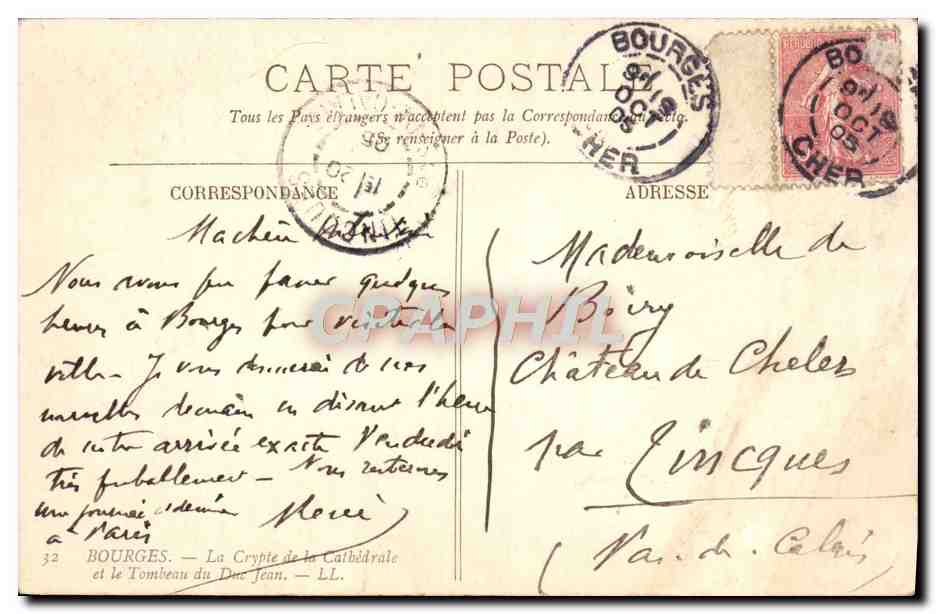 CARTE POSTALE
Tous les Pays étrangers n'acceptent pas la Correspondance au recto.
(Se renseigner à la Poste).
BOURGES
OCT
05
CHER
BOURGES
OCT
05
CHER
TINCQUES
CORRESPONDANCE
Ma chère
Nous avons pu passer quelques
heures à Bourges pour visiter la
ville - Je vous donnerai de nos
nouvelles demain en disant l'heure
de notre arrivée exacte Vendredi
très probablement - Nous resterons
une journée
à Paris
ADRESSE
Mademoiselle de
Boiry
Château de Chelers
par Tincques
(Pas-de-Calais)
32 BOURGES. — La Crypte de la Cathédrale
et le Tombeau du Duc Jean. — LL.
CPAPHIL